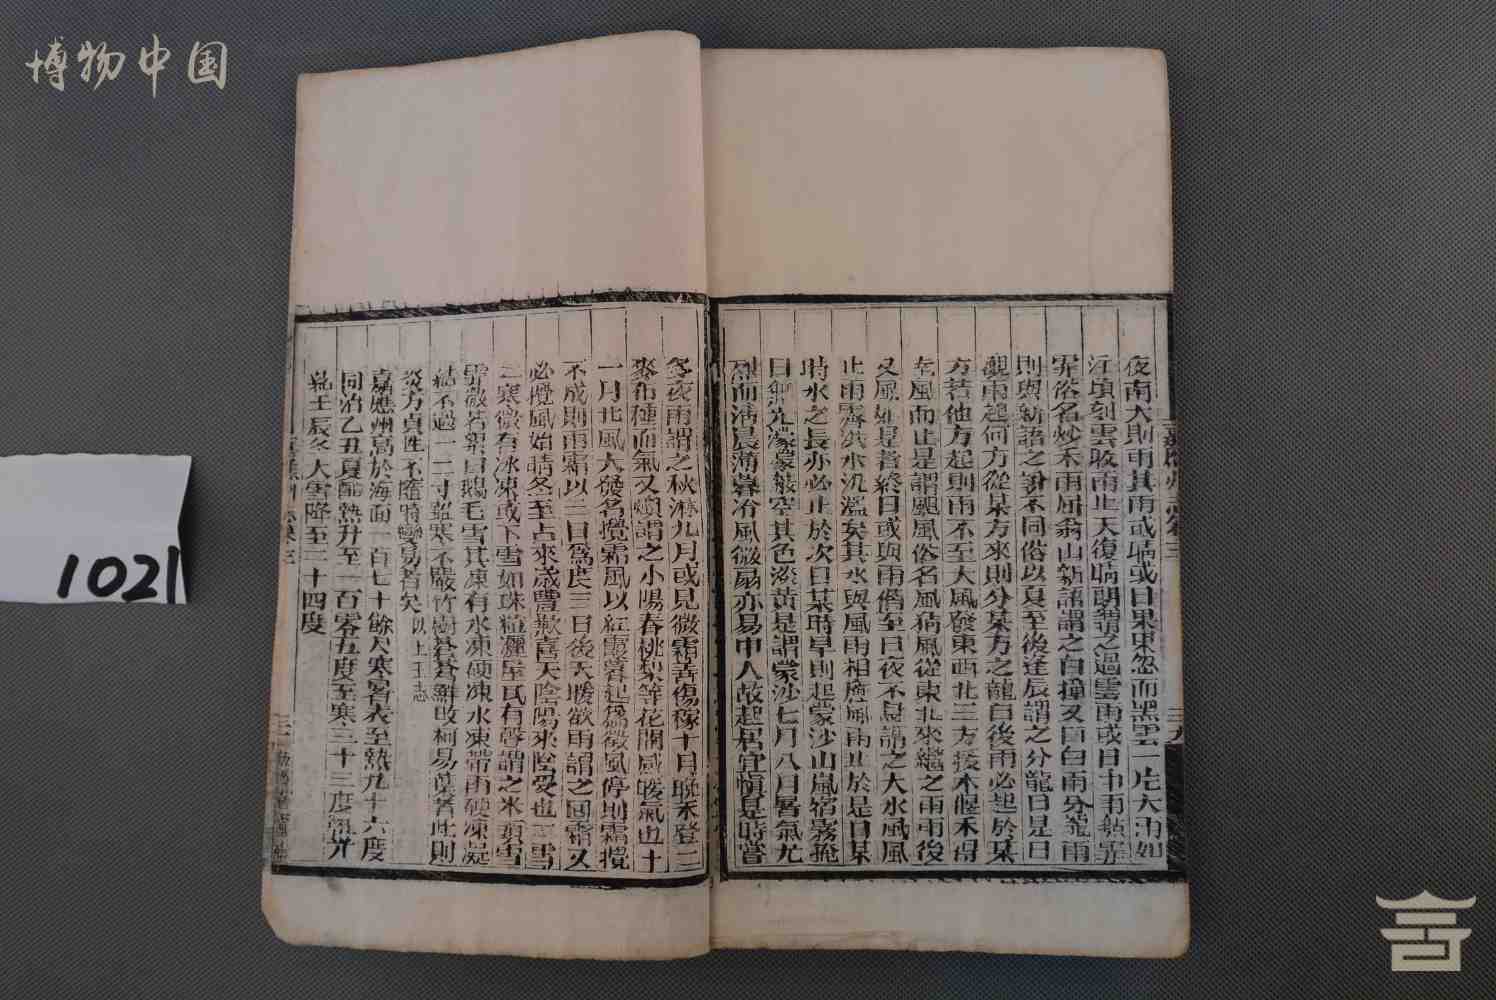 博物中国
夜南大則明其雨或晴或日果杲忽而黑雲一片大雨如
江頃刻雲收雨止天復晴朗謂之過雲雨或日中雨
俗名炒禾雨屈翁山新語謂之白撞又曰白雨分龍雨
則與新語之說不同俗以夏至後逢辰謂之分龍日是日
觀雨起何方從某方來則分某方之龍自後雨必起於某
方若他方起則雨不至大風發東西北三方拔木偃禾得
風而止是謂颶風俗名風颱風從東北來繼之雨雨後
又風如是者終日或與雨偕至日夜不息謂之大水風風
止雨霽洪水汎溢矣其水與風雨相應風雨止於是日某
時水之長亦必止於次日某時旱則起蒙沙山嵐宿霧掩
日無光濛濛蔽空其色淡黃是謂蒙沙七月八月暑氣尤
烈而清晨薄暮冷風微扇亦易中人故起居宜慎是時嘗
冬夜雨謂之秋淋九月或見微霜害傷稼十月晚禾登二
麥布種而氣又煩謂之小陽春桃梨等花開感暖氣也十
一月北風大發名攪霜風以紅霞暮起為徵風停則霜攪
不成則雨霜以三日為度三日後天暖欲雨謂之回霜又
必攪風始晴冬至占來歲豐歉喜天陰陽來陰受也三雪
二寒微有冰凍或下雪如珠粒灑屋瓦有聲謂之米頭雪
雪微若絮曰鵝毛雪其凍有水凍硬凍水凍帶雨硬凍凝
結不過一二寸雖寒不嚴竹樹蒼蒼鮮改柯易葉者此則
炎方貞性不隨時變易者矣以上王志
嘉應州高於海面一百七十餘尺寒暑表至熱九十六度
同治乙丑夏酷熱升至一百零五度至寒三十三度
光緒壬辰冬大雪降至二十四度
1021